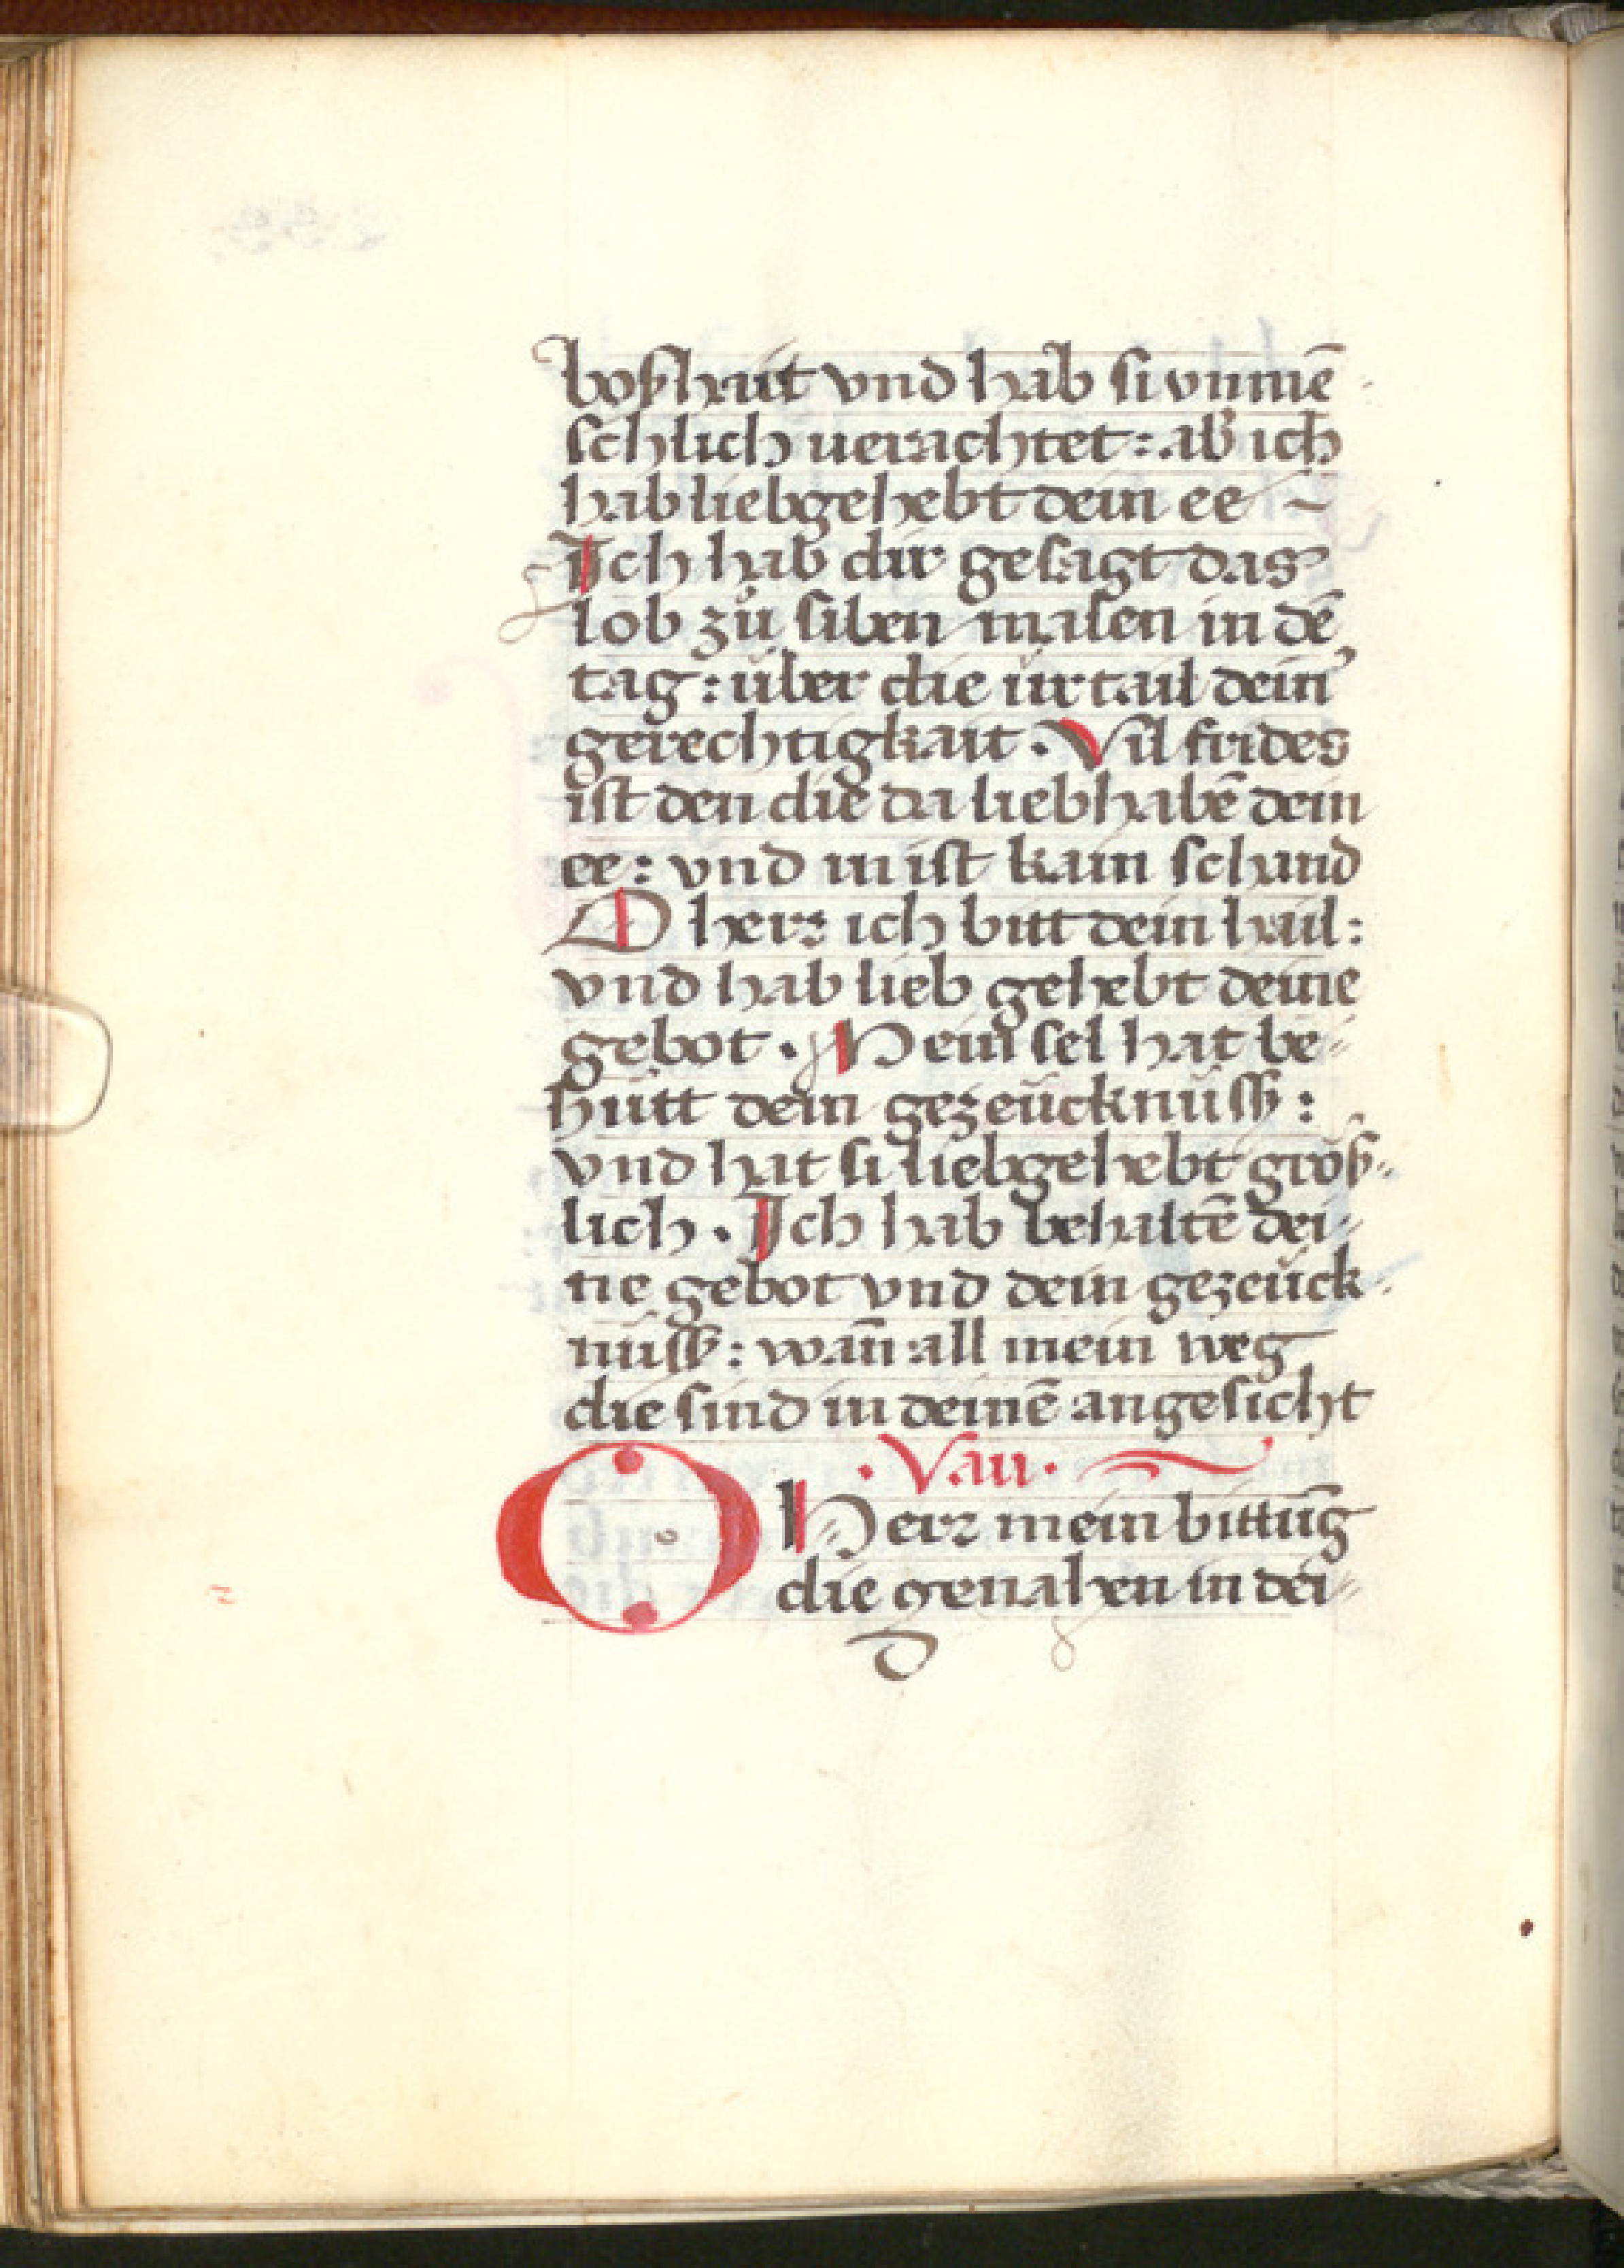 boßhait vnd hab si vnmē
schlich uerachtet: ab̕ ich
hab liebgehebt dein ee ~
Ich hab dir gesagt das
lob zů siben malen in dē
tag: über die ürtail dein̕
gerechtigkait. Vil frides
ist den die da liebhabē dein
ee: vnd in ist kain schand
O herr ich bitt dein hail:
vnd hab lieb gehebt deine
gebot. Mein sel hat be-
hütt dein gezeücknüssß:
vnd hat si liebgehebt größ-
lich. Ich hab behaltē dei-
ne gebot vnd dein gezeück
nüssß: wan̄ all mein weg
die sind in deinē angesicht
.Vau.
O Herr mein bittūg
die genahen in dei-